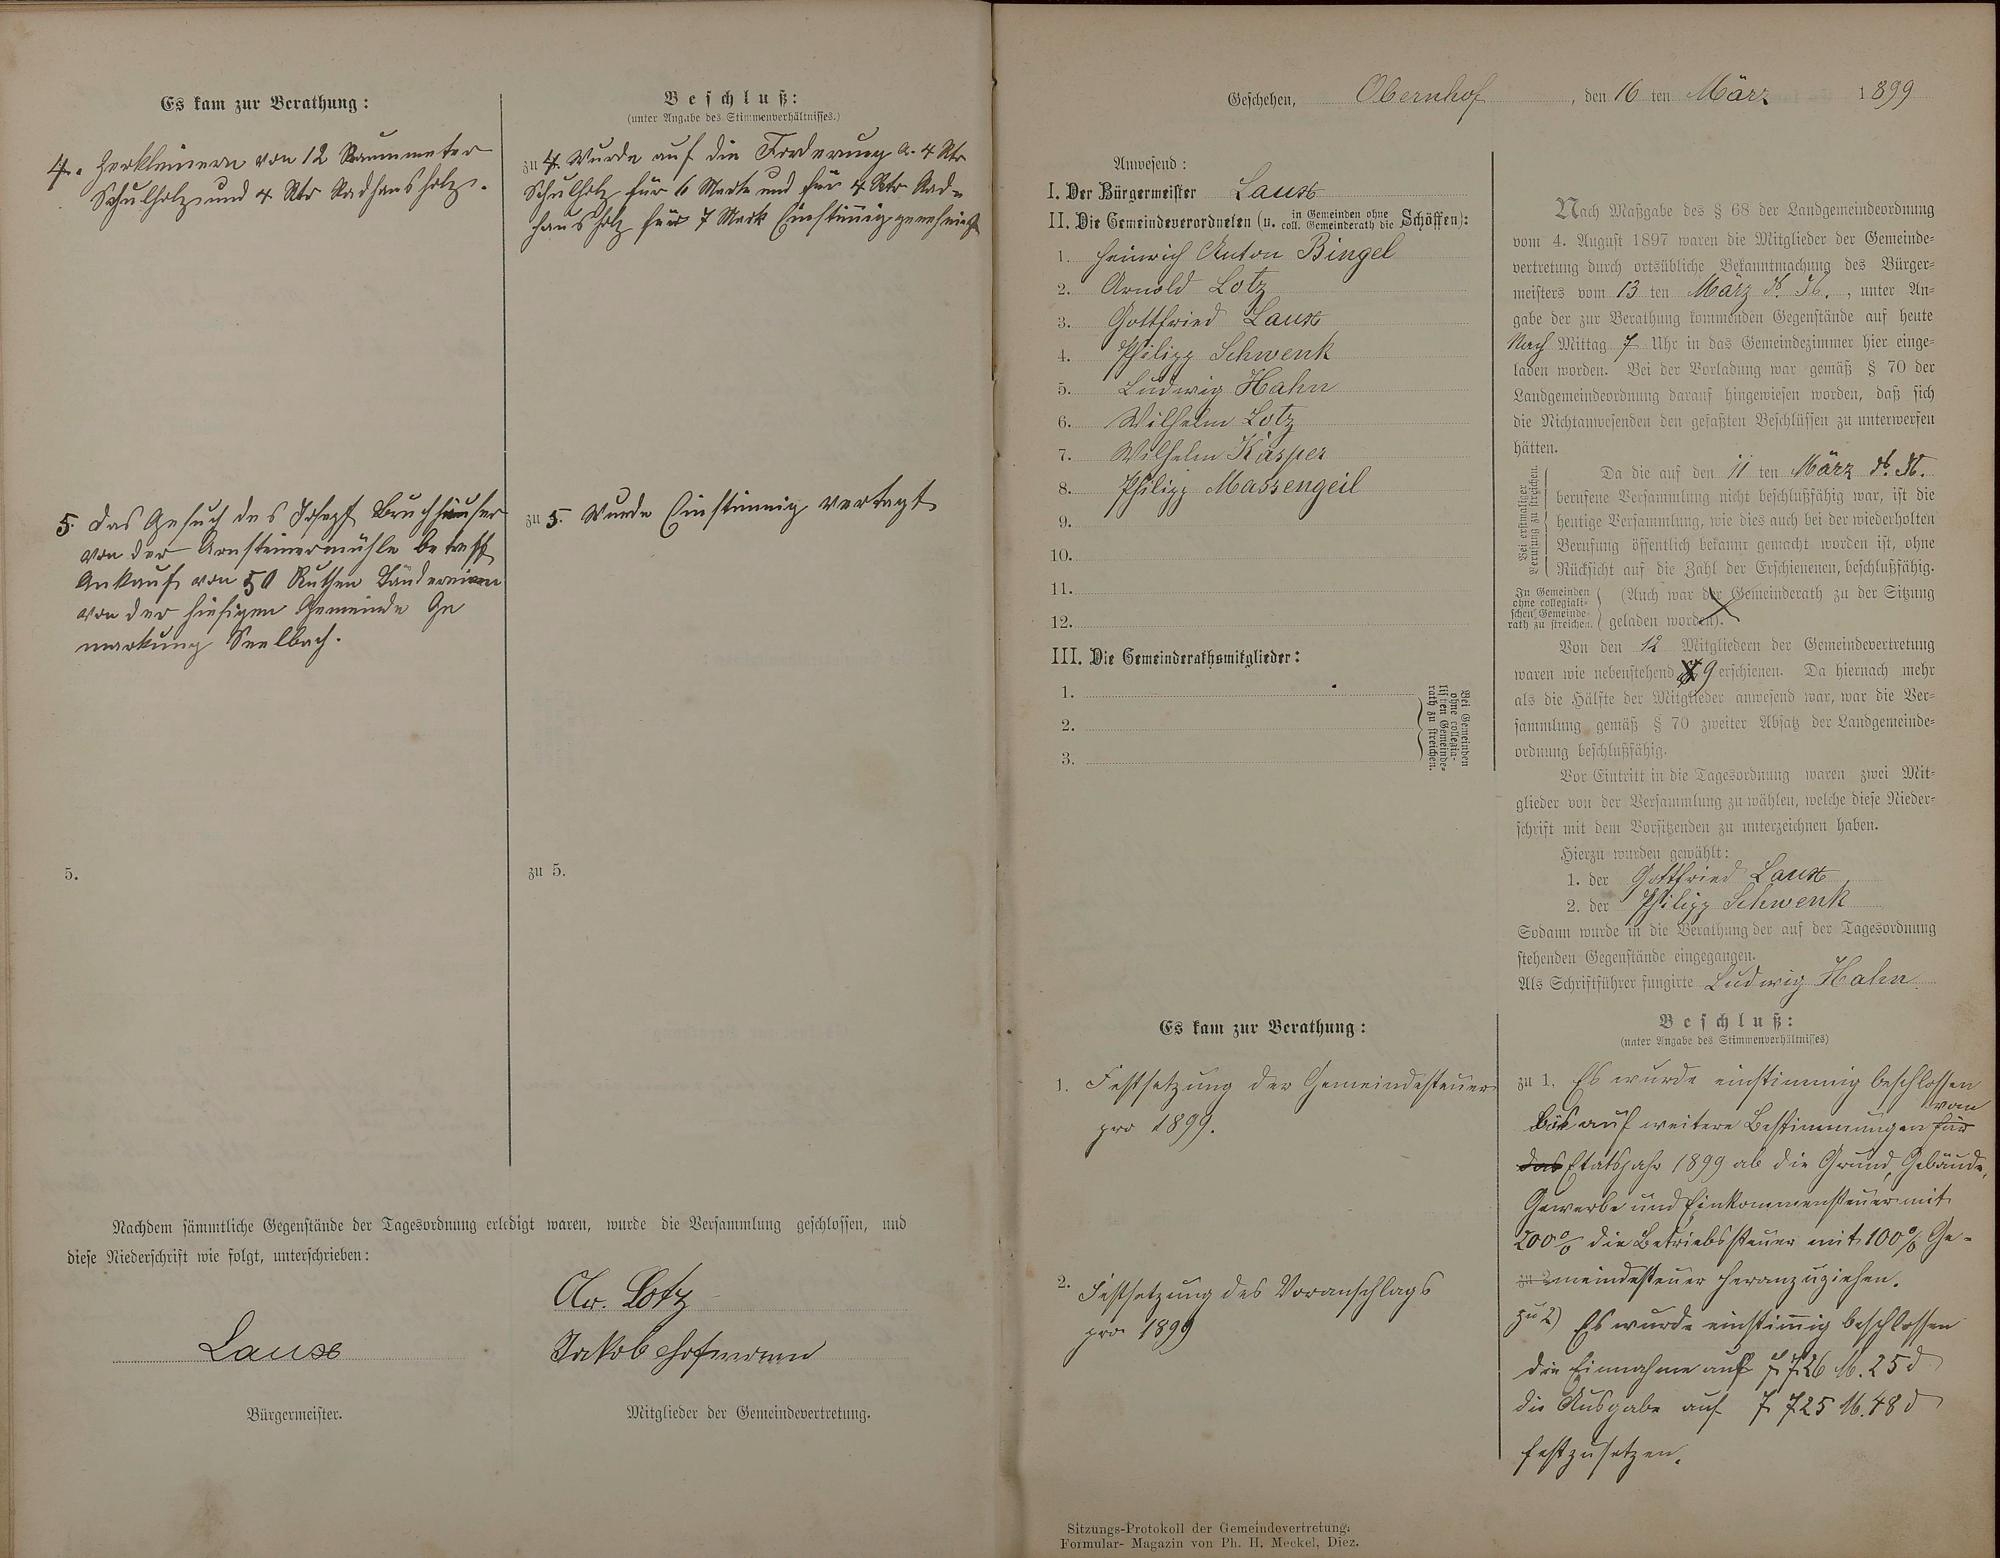 Es kam zur Berathung:
4. Zerkleinern von 12 Raummeter
Schulholz und 4 Rtr Radhausholz.
5. das Gesuch des Joseph Bruchhäuser
von der Arnsteinermühle betreff
Ankauf von 50 Ruthen Ländereien
von der hiesigen Gemeinde Ge
markung Seelbach.
5.
Beschluß:
(unter Angabe des Stimmenverhältnisses.)
zu 4. Wurde auf die Forderung a. 4 Rtr
Schulholz für 6 Mark und für 4 Rtr Rad-
hausholz für 7 Mark Einstimig genehmigt
zu 5. Wurde Einstimmig vertagt
zu 5.
Nachdem sämmtliche Gegenstände der Tagesordnung erledigt waren, wurde die Versammlung geschlossen, und
diese Niederschrift wie folgt, unterschrieben:
Ar. Lotz
Laux
Jakob Hofmann
Bürgermeister.
Mitglieder der Gemeindevertretung.
Geschehen, Obernhof, den 16 ten März 1899
Anwesend:
I. Der Bürgermeister Laux
II. Die Gemeindeverordneten (u. in Gemeinden ohne coll. Gemeinderath die Schöffen):
1. Heinrich Anton Bingel
2. Arnold Lotz
3. Gottfried Laux
4. Philipp Schwenk
5. Ludwig Hahn
6. Wilhelm Lotz
7. Wilhelm Kasper
8. Philipp Massengeil
9.
10.
11.
12.
III. Die Gemeinderathsmitglieder:
1.
2.
3.
Bei Gemeinden
ohne collegia-
lischen Gemeinde-
rath zu streichen.
Nach Maßgabe des § 68 der Landgemeindeordnung
vom 4. August 1897 waren die Mitglieder der Gemeinde-
vertretung durch ortsübliche Bekanntmachung des Bürger-
meisters vom 13 ten März d. Js., unter An-
gabe der zur Berathung kommenden Gegenstände auf heute
Nach Mittag 7 Uhr in das Gemeindezimmer hier einge-
laden worden. Bei der Vorladung war gemäß § 70 der
Landgemeindeordnung darauf hingewiesen worden, daß sich
die Nichtanwesenden den gefaßten Beschlüssen zu unterwerfen
hätten.
Bei erstmaliger
Berufung zu streichen.
Da die auf den 11 ten März d. Js.
berufene Versammlung nicht beschlußfähig war, ist die
heutige Versammlung, wie dies auch bei der wiederholten
Berufung öffentlich bekannt gemacht worden ist, ohne
Rücksicht auf die Zahl der Erschienenen, beschlußfähig.
In Gemeinden
ohne collegiali-
schen Gemeinde-
rath zu streichen.
(Auch war der Gemeinderath zu der Sitzung
geladen worden).
Von den 12 Mitgliedern der Gemeindevertretung
waren wie nebenstehend 9 erschienen. Da hiernach mehr
als die Hälfte der Mitglieder anwesend war, war die Ver-
sammlung gemäß § 70 zweiter Absatz der Landgemeinde-
ordnung beschlußfähig.
Vor Eintritt in die Tagesordnung waren zwei Mit-
glieder von der Versammlung zu wählen, welche diese Nieder-
schrift mit dem Vorsitzenden zu unterzeichnen haben.
Hierzu wurden gewählt:
1. der Gottfried Laux
2. der Philipp Schwenk
Sodann wurde in die Berathung der auf der Tagesordnung
stehenden Gegenstände eingegangen.
Als Schriftführer fungirte Ludwig Hahn
Es kam zur Berathung:
1. Festsetzung der Gemeindesteuer
pro 1899.
2. Festsetzung des Voranschlags
pro 1899
Beschluß:
(unter Angabe des Stimmenverhältnisses)
zu 1. Es wurde einstimmig beschlossen
bis auf weitere Bestimmungen für vom
das Etatsjahr 1899 ab die Grund, Gebäude,
Gewerbe und Einkommensteuer mit
200% die Betriebssteuer mit 100% Ge-
zu 2 meindesteuer heranzuziehen.
zu 2) Es wurde einstimig beschlossen
die Einnahme auf 7 726 M. 25 d
die Ausgabe auf 7 725 M. 48 d
festzusetzen.
Sitzungs-Protokoll der Gemeindevertretung.
Formular-Magazin von Ph. H. Meckel, Diez.